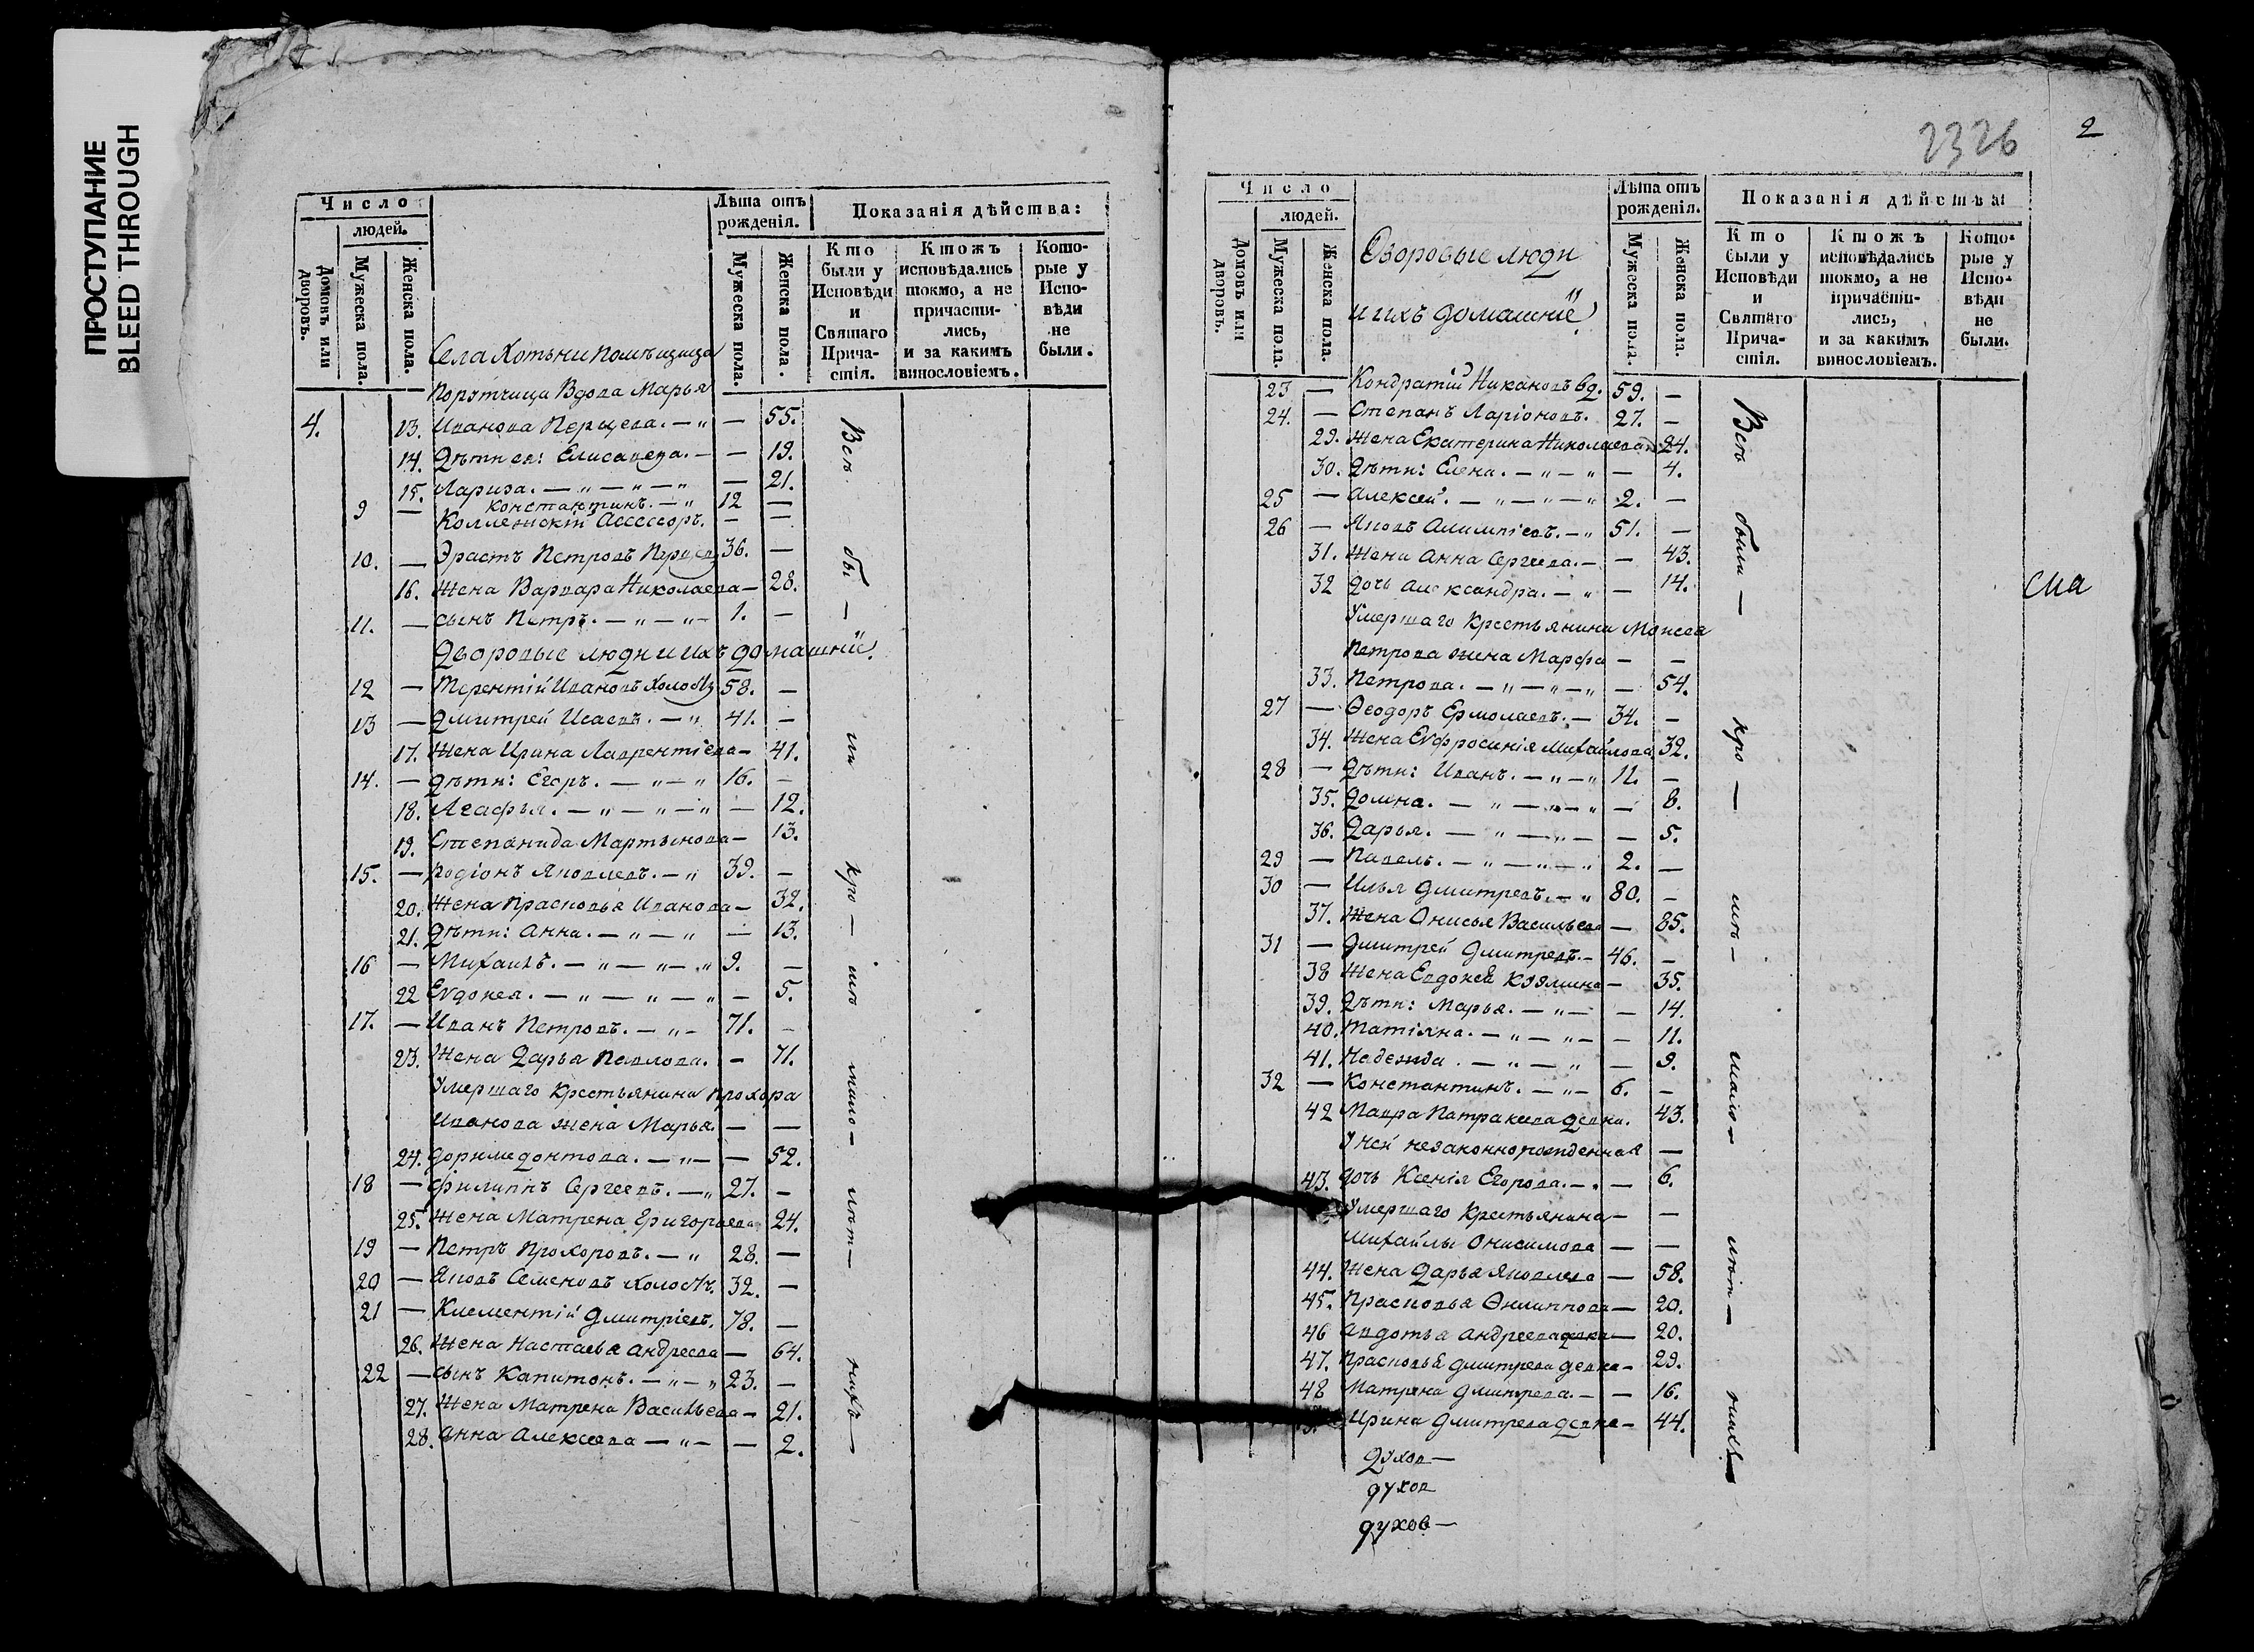 ПРОСТУПАНИЕ
BLEED THROUGH
Число
людей.
Домовъ или дворовъ.
Мужеска пола.
Женска пола.
Лѣта отъ рожденія.
Мужеска пола.
Женска пола.
Показанія дѣйства:
Кто были у Исповѣди и Святаго Прича- стія.
Ктожъ исповѣдались токмо, а не причасти- лись, и за какимъ винословіемъ.
Кото- рые у Испо- вѣди не были.
Села Хотьни помѣщица
Порутчица Вдова Марья
4. 13. Иванова Перцева. — „ — 55.
14. Дѣти ея: Елисавета. — — 19.
15. Лариза. — „ — „ — „ — 21.
9 — Константинъ. — „ 12 —
Коллежскій Ассессоръ. — —
10. — Эрастъ Петровъ 36. —
16. Жена Варвара Николаева — 28.
11. — сынъ Петръ. — „ — „ — 1. —
Дворовые люди и ихъ домашніи.
12 — Терентій Ивановъ холостъ 58. —
13 — Дмитрей Исаевъ. — „ 41. —
17. Жена Ирина Лаврентіева — 41.
14. — дѣти: Егоръ. — „ — „ 16. —
18. Агафья. — „ — „ — „ — 12.
19. Степанида Мартынова — 13.
15. — Родіонъ Яковлевъ. — „ 39. —
20. Жена Прасковья Иванова — 32.
21. Дѣти: Анна. — „ — „ — 13.
16 — Михаилъ. — „ — „ — „ 9. —
22 Еѵдокея. — „ — „ — „ — 5.
17. — Иванъ Петровъ. — „ — 71. —
23. Жена Дарья Павлова. — 71.
Умершаго Крестьянина Прохора
Иванова жена Марья — —
24. Доримедонтова. — „ — — 52.
18 — Филиппъ Сергеевъ. — „ 27. —
25. Жена Матрена Григорьева 24.
19 — Петръ Прохоровъ. — „ 28. —
20 — Яковъ Семеновъ холостъ. 32. —
21 — Клементій Дмитріевъ. 78. —
26. Жена Настасья Андреева — 64.
22 — сынъ Капитонъ. — „ — „ 23. —
27. Жена Матрена Васильева — 21.
28. Анна Алексеева — „ — — 2.
Всѣ бы — ли кро — мѣ мало — лѣт — нихъ —
2326
2
Число
людей.
Домовъ или дворовъ.
Мужеска пола.
Женска пола.
Дворовые люди
и ихъ домашніе
Лѣта отъ рожденія.
Мужеска пола.
Женска пола.
Показанія дѣйства:
Кто были у Исповѣди и Святаго Прича- стія.
Ктожъ исповѣдались токмо, а не причасти- лись, и за какимъ винословіемъ.
Кото- рые у Испо- вѣди не были.
23 — Кондратій Никановъ вд. 59. —
24. — Степанъ Ларіоновъ. 27. —
29. Жена Екатерина Николаева 24.
30. Дѣти: Елена. — „ — „ — 4.
25 — Алексей. — „ — „ — „ 2. —
26 — Яковъ Алимпіевъ. — „ 51. —
31. Жена Анна Сергеева. — — 43.
32 Дочь Александра. — „ — 14.
Умершаго Крестьянина Моисея
Петрова жена Марфа — —
33. Петрова. — „ — „ — „ — 54.
27 — Ѳеодоръ Ермолаевъ. — 34. —
34. Жена Еѵфросинія Михайлова 32.
28 — Дѣти: Иванъ. — „ — „ 12. —
35. Домна. — „ — „ — „ — 8.
36. Дарья. — „ — „ — — 5.
29 — Павелъ. — „ — „ — „ 2. —
30 — Илья Дмитревъ. — „ 80. —
37. Жена Онисья Васильева — 85.
31 — Дмитрей Дмитревъ. — 46. —
38 Жена Евдокея Козмина — 35.
39. Дѣти: Марья. — „ — — 14.
40. Татіяна. — „ — „ — — 11.
41. Надежда. — „ — „ — 9.
32 — Константинъ. — „ — 6. —
42 Мавра Патракеева девка. 43.
У ней незаконнорожденная —
43. дочь Ксенія Егорова. — „ — 6.
Умершаго Крестьянина — —
Михайлы Онисимова — —
44. Жена Дарья Яковлева — 58.
45. Прасковья Филиппова — 20.
46 Авдотья Андреева девка — 20.
47. Прасковья Дмитрева девка — 29.
48 Матрена Дмитрева. — — 16.
Ирина Дмитрева девка — 44.
Всѣ были — кро — мѣ — мало — лѣт — нихъ —
Духов —
духов
духов —
сма